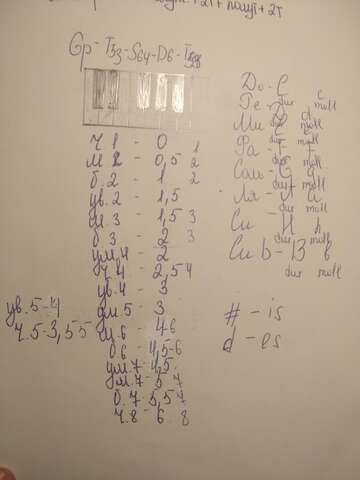 +2T+
+2T
Gp-T53-S64-D6-T53
ч.1 - 0 1
м.2 - 0,5 2
б.2 - 1 2
ув.2 - 1,5
м.3 - 1,5 3
б.3 - 2 3
ум.4 - 2
ч.4 - 2,5 4
ув.4 - 3
ум.5 - 3
ув.5-4
ч.5-3,5 5
м.6 - 4 6
б.6 - 4,5-6
ум.7-4,5
м.7-5 7
б.7-5,5 7
ч.8 - 6 8
До-C c
dur moll
Ре-D d
dur moll
Ми-E e
dur moll
Фа-F f
Соль-G g
dur moll
Ля-A a
dur moll
Си-H h
dur moll
Си b-B b
dur moll
#-is
d-es